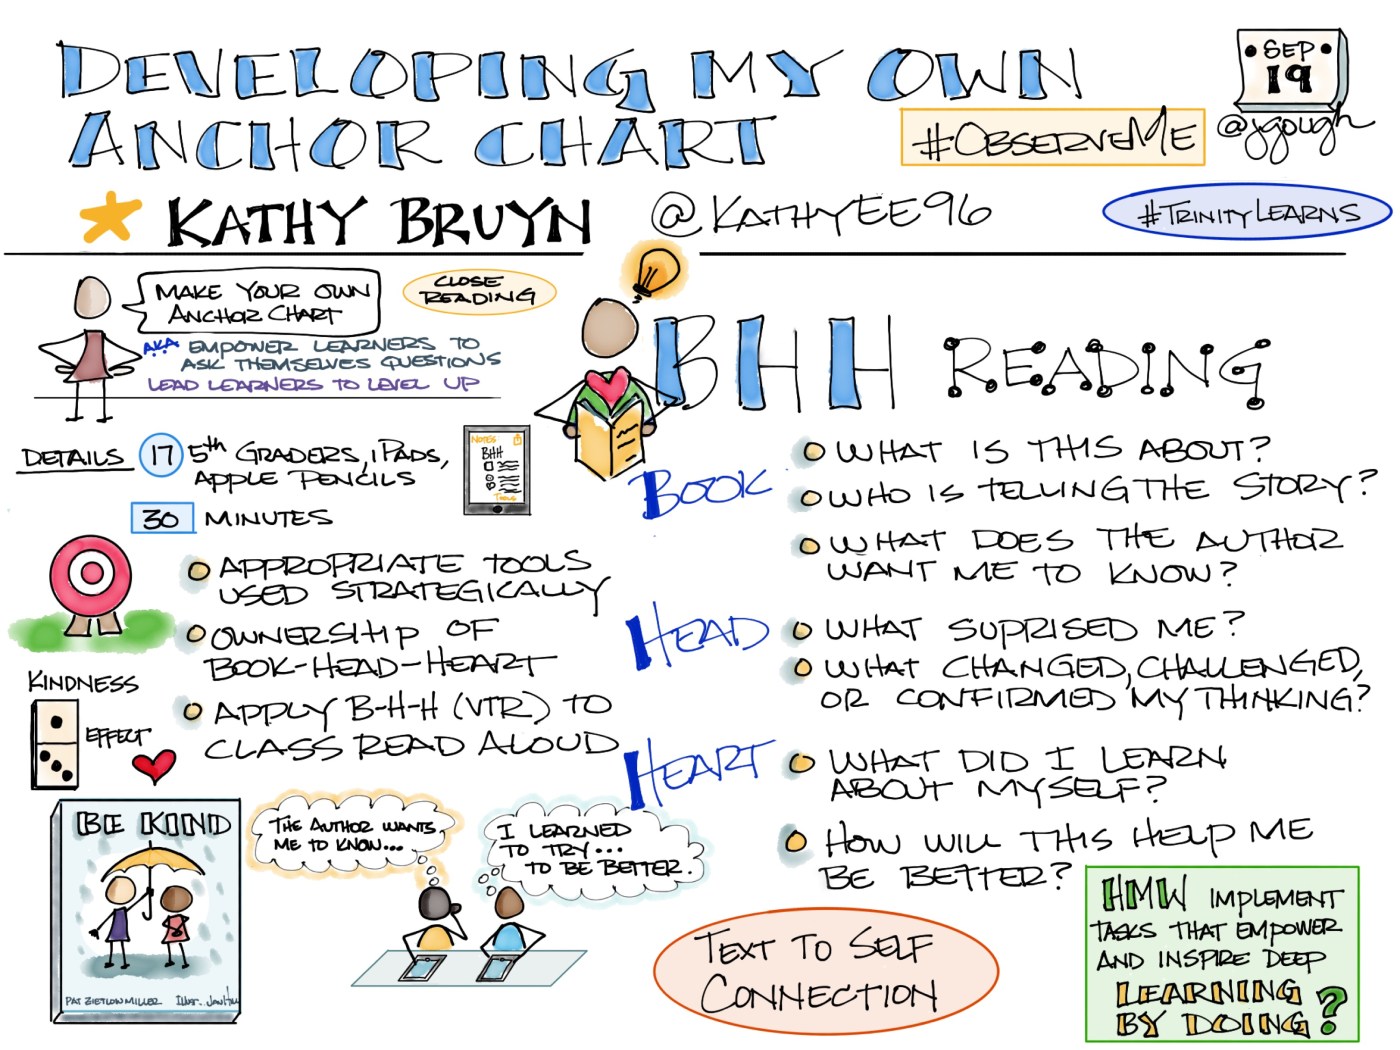 DEVELOPING MY OWN
ANCHOR CHART
SEP
19
@jgough
#OBSERVEME
KATHY BRUYN @KATHYEE96
#TRINITYLEARNS
MAKE YOUR OWN
ANCHOR CHART
CLOSE
READING
AKA EMPOWER LEARNERS TO
ASK THEMSELVES QUESTIONS
LEAD LEARNERS TO LEVEL UP
DETAILS 17 5th GRADERS, iPADS,
APPLE PENCILS
30 MINUTES
NOTES
BHH
TOOLS
APPROPRIATE TOOLS
USED STRATEGICALLY
OWNERSHIP OF
BOOK-HEAD-HEART
APPLY B-H-H (VTR) TO
CLASS READ ALOUD
KINDNESS
EFFECT
BE KIND
PAT ZIETLOW MILLER ILLUS. JEN
THE AUTHOR WANTS
ME TO KNOW...
I LEARNED
TO TRY...
TO BE BETTER.
BHH READING
BOOK
WHAT IS THIS ABOUT?
WHO IS TELLING THE STORY?
WHAT DOES THE AUTHOR
WANT ME TO KNOW?
HEAD
WHAT SUPRISED ME?
WHAT CHANGED, CHALLENGED,
OR CONFIRMED MY THINKING?
HEART
WHAT DID I LEARN
ABOUT MYSELF?
HOW WILL THIS HELP ME
BE BETTER?
TEXT TO SELF
CONNECTION
HMW IMPLEMENT
TASKS THAT EMPOWER
AND INSPIRE DEEP
LEARNING
BY DOING?